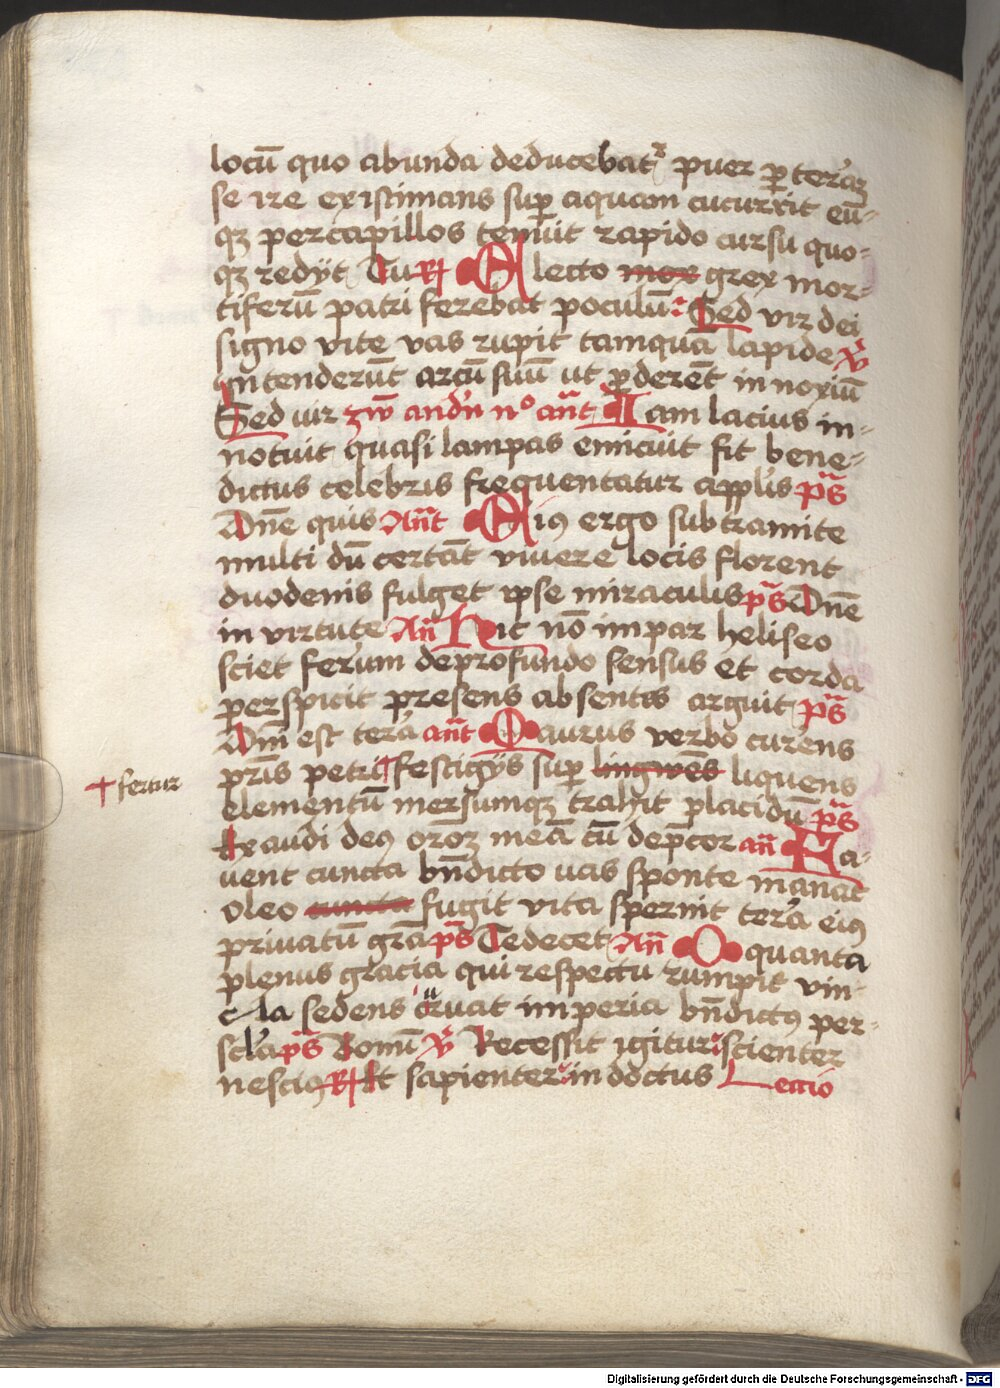 locū quo ab unda deducebatr puer ꝑ terā
se ire existimans suꝑ aquam cucurrit eū-
qꝫ per capillos tenuit rapido cursu quo-
qꝫ redÿt Tu R Electo mox grex mor-
tiferū patri ferebat poculū Sed vir dei
signo vite vas rupit tamquā lapide V
Intenderūt arcū suū ut ꝑderēt innoxiū
Sed uir zw andn nº ānt Iam lacius in-
notuit quasi lampas emicuit fit bene-
dictus celebris frequentatur applis ps
Dne quis Ant Eiꝰ ergo sub tramite
multi dū certāt vivere locis florent
duodenis fulget ipse miraculis ps Dnē
in virtute Añ Hic nō impar heliseo
sciet ferum de profundo sensus et corda
ꝑerspicit presens absentis arguit ps
Dnī est terā ant Maurus verbo currens
pris petri † festigÿs suꝑ lingwēs liquens
† fertur
elementū mersumqꝫ trahit placidū ps
Exaudi deꝰ oroꝫ meā cū dep̄cor añ Fa-
uent cuncta bn̄dicto uas sponte manat
oleo cuncta fugit vita spernit terā eiꝰ
privatū grā ps Te decet Añ O quanta
plenus gracia qui respectu rumpit vin-
cla sedens curvat imperia bn̄dictꝰ per-
scla ps Bonū V Recessit igitur scienter
nesciꝰ R Et sapienter indoctus Lectio
Digitalisierung gefördert durch die Deutsche Forschungsgemeinschaft - DFG